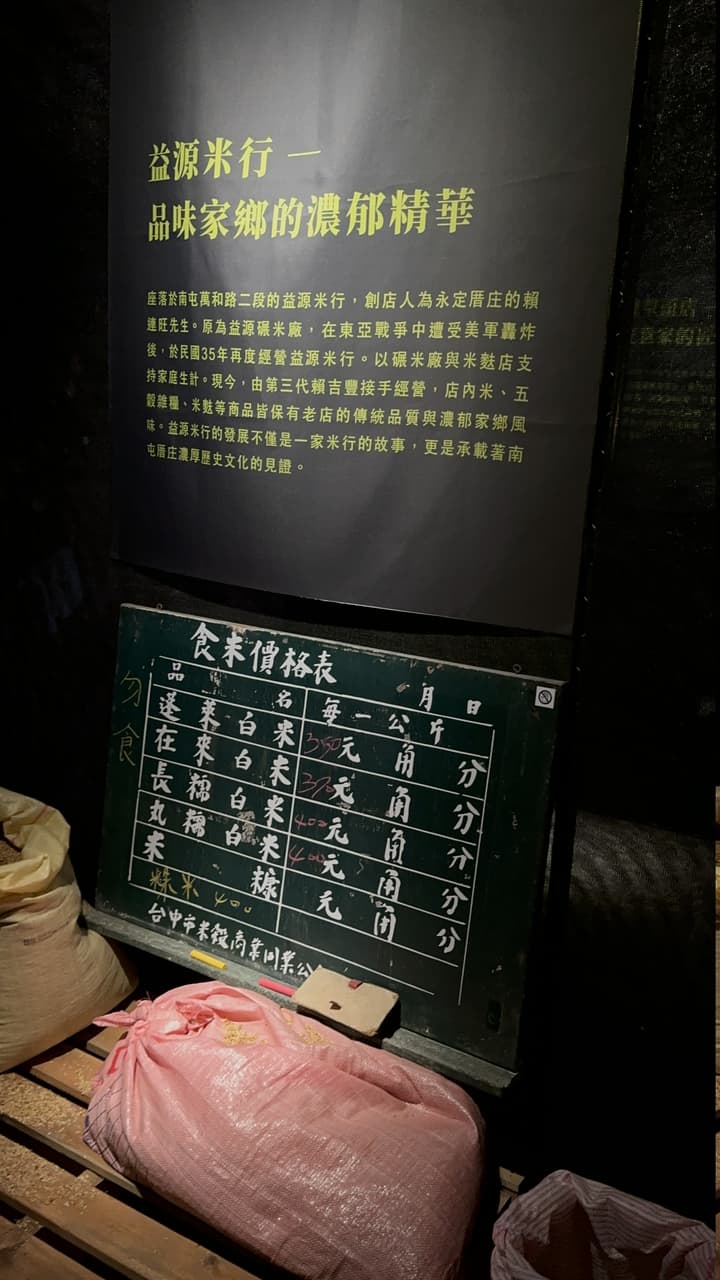 益源米行 —
品味家鄉的濃郁精華
座落於南屯萬和路二段的益源米行，創店人為永定厝庄的賴
連旺先生。原為益源碾米廠，在東亞戰爭中遭受美軍轟炸
後，於民國35年再度經營益源米行。以碾米廠與米麩店支
持家庭生計。現今，由第三代賴吉豐接手經營，店內米、五
穀雜糧、米麩等商品皆保有老店的傳統品質與濃郁家鄉風
味。益源米行的發展不僅是一家米行的故事，更是承載著南
屯厝庄濃厚歷史文化的見證。
食米價格表
月 日
品 名 每一公斤
蓬萊白米 350元 角 分
在來白米 370元 角 分
長糯白米 400元 角 分
丸糯白米 400元 角 分
米 糠 元 角 分
糙米 400
台中市米穀商業同業公
勿食